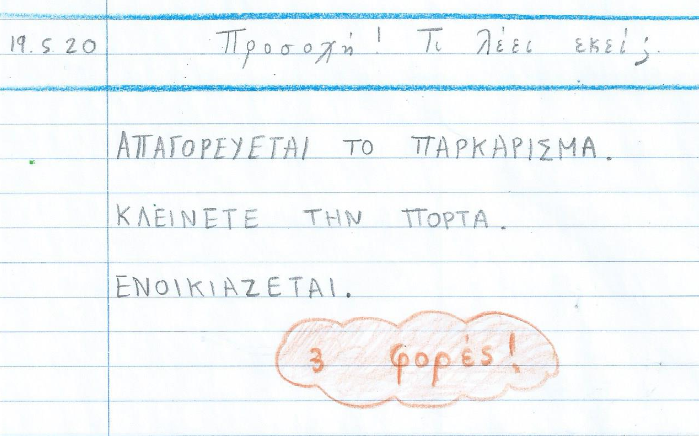 19.5.20 Προσοχή! Τι λέει εκεί;
ΑΠΑΓΟΡΕΥΕΤΑΙ ΤΟ ΠΑΡΚΑΡΙΣΜΑ.
ΚΛΕΙΝΕΤΕ ΤΗΝ ΠΟΡΤΑ.
ΕΝΟΙΚΙΑΖΕΤΑΙ.
3 φορές!